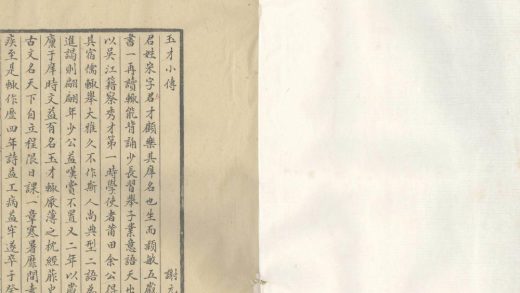 玉才小傳
謝元
君姓宋字君才顧樂其庠名也生而穎敏五歲
書一再讀輒能背誦少長習舉子業意語天出
以吳江籍察秀才第一時學使者莆田余公得
其宿儒輒舉大雅久不作斯人尚典型二語為
進謁則翩翩年少公益嘆賞不置又二年以歲
廩于庠時文益百名玉才輒厭薄之枕經葄史
古文名天下自立程限日課一章寒暑靡間者
疾至是輒作歷四年詩益工病益牢遂卒于癸